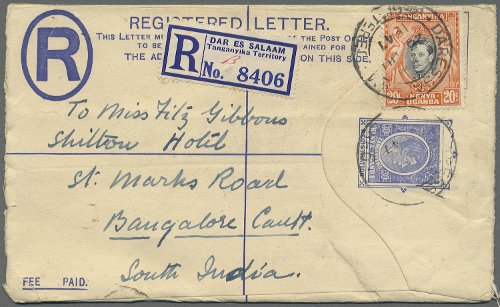 REGISTERED LETTER.
THIS LETTER MU
THE POST OF
TO BE
AINED FOR
THE AD
ON THIS SIDE.
R
R
DAR ES SALAAM
Tanganyika Territory
B
No. 8406
TANGANYIKA
20c
KENYA
UGANDA
20c
To Miss Fitz Gibbons
Shilton Hotel
St. Marks Road
Bangalore Cantt.
South India.
FEE PAID.